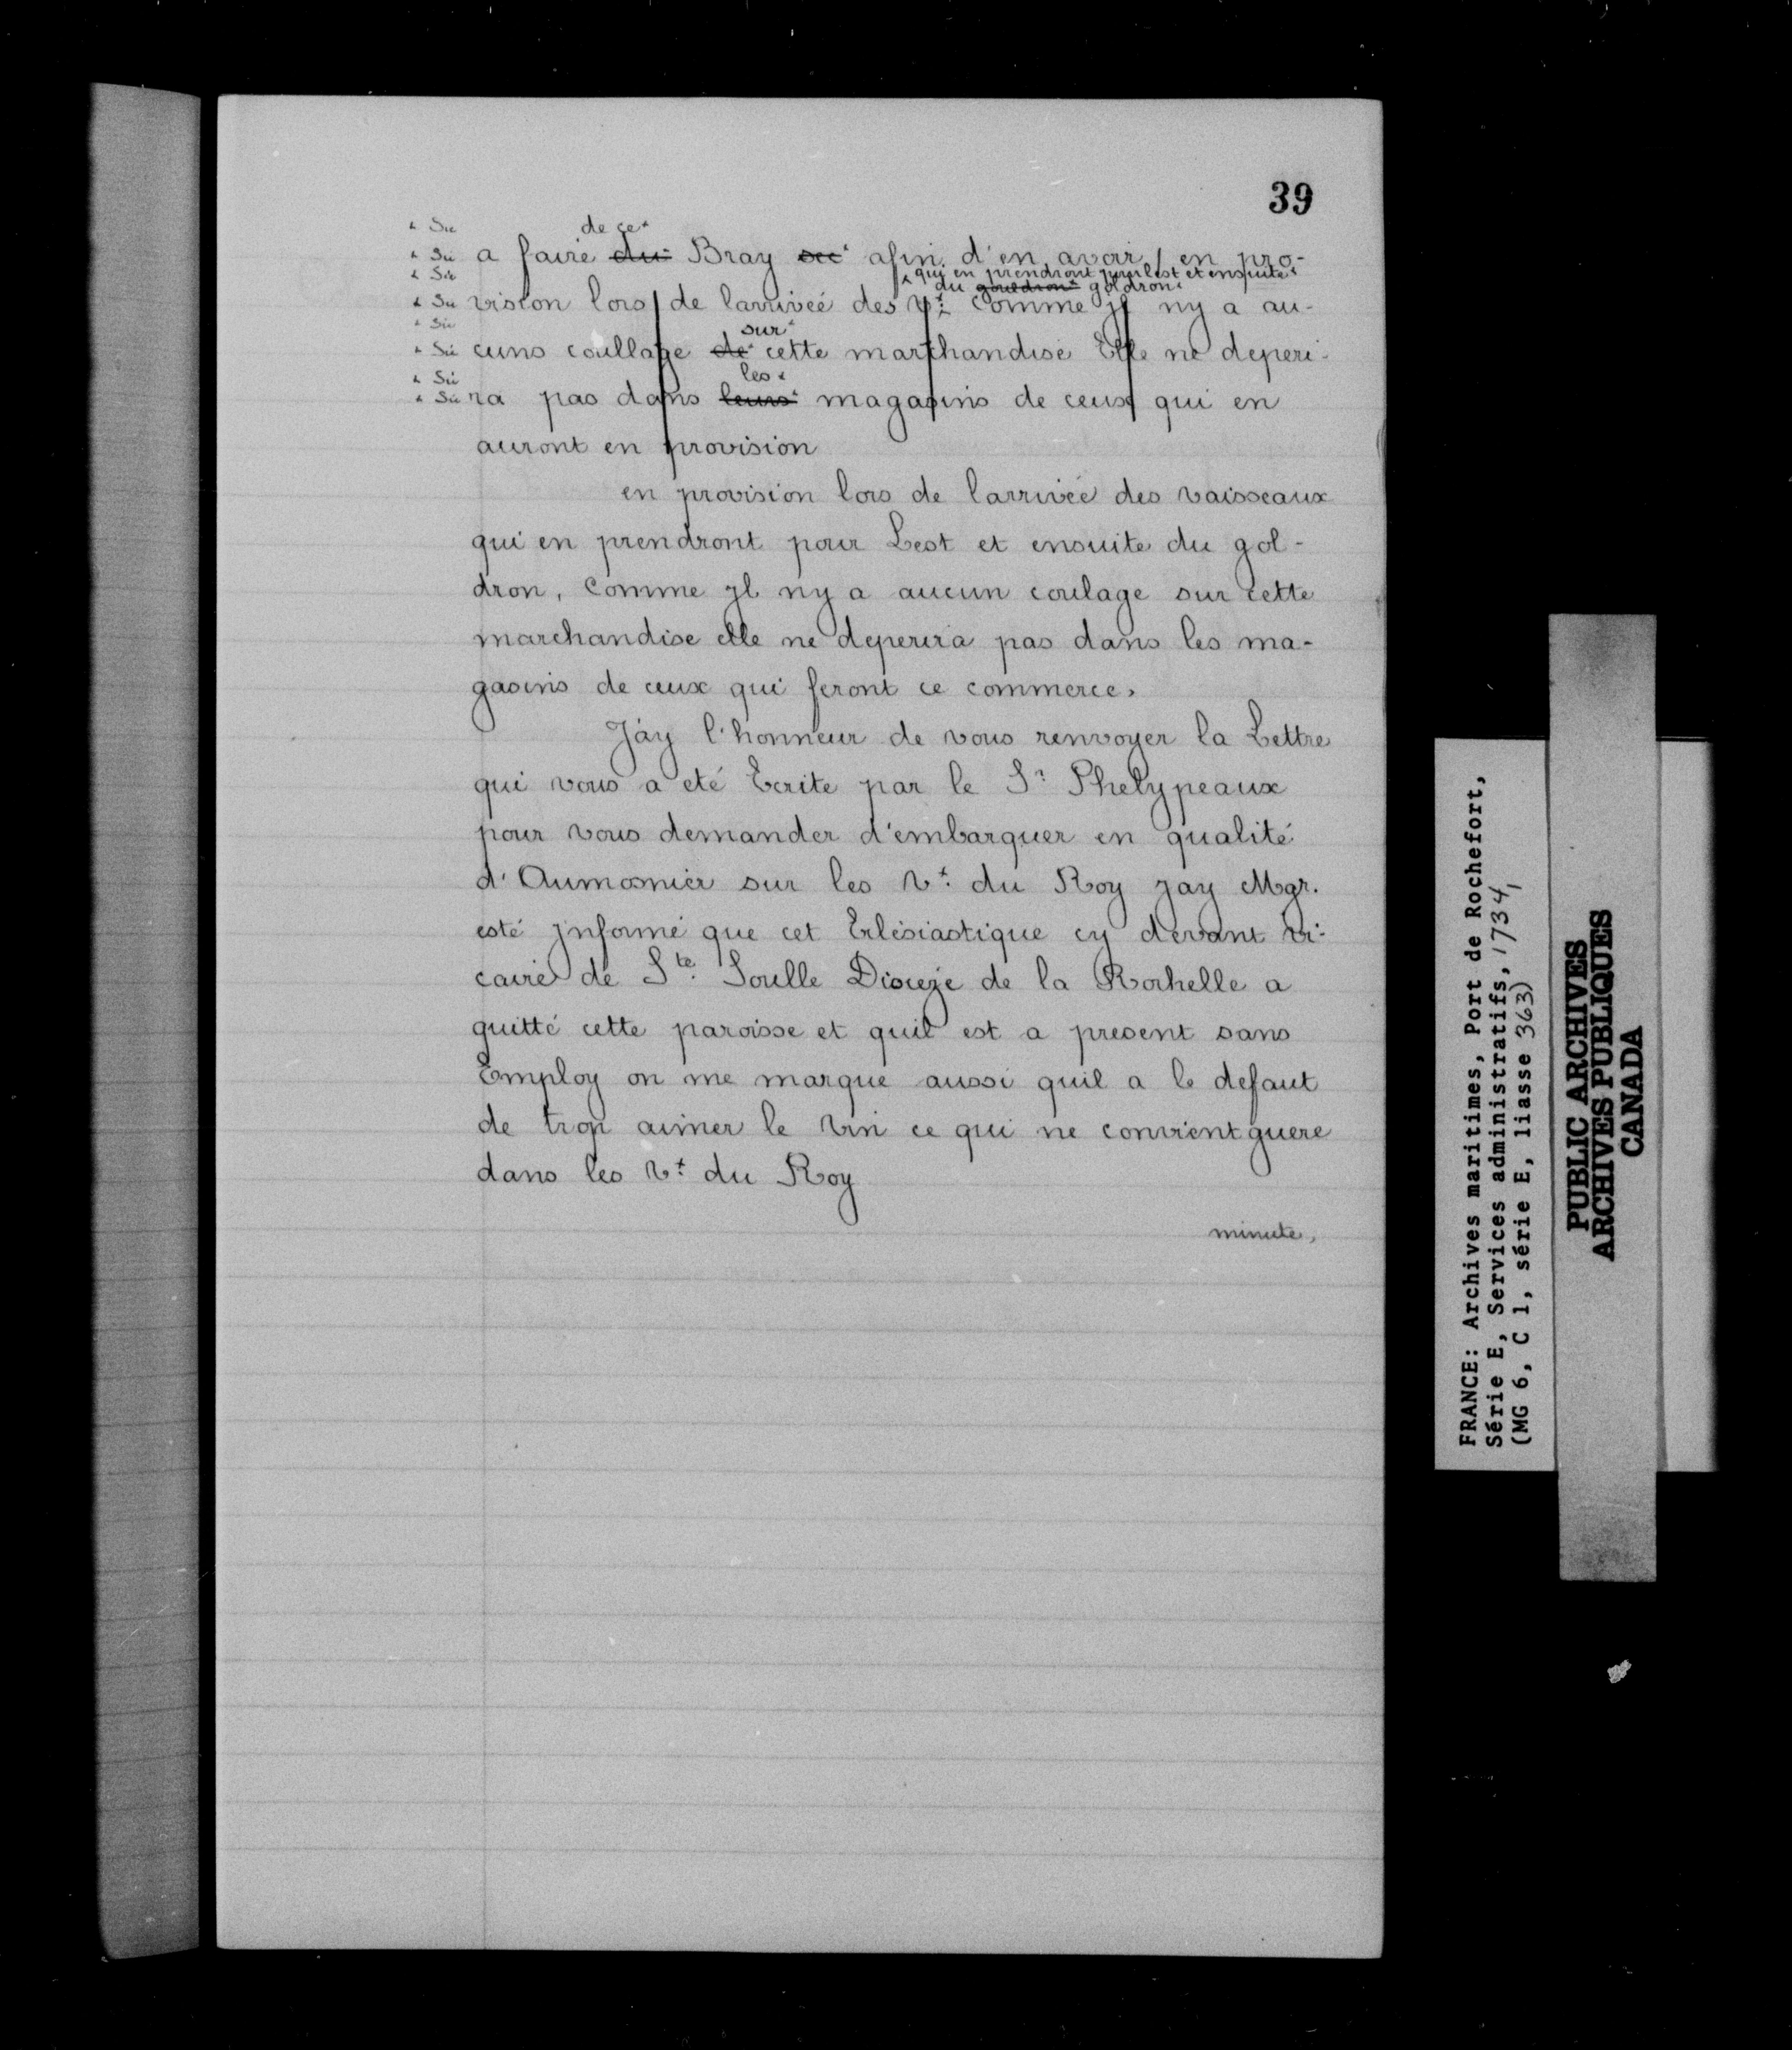 39
x Sic de ce x
x Sic a faire du x Bray sec x afin d'en avoir / en pro-
x Sic x qui en prendront pour lest et ensuite x
du gouldron x goldron x
x Sic vision lors de larriveé des vx. Comme jl ny a au-
x Sic sur x
x Sic cuns coullage de x cette marchandise Elle ne deperi-
x Sic les x
x Sic ra pas dans leurs x magasins de ceux qui en
auront en provision
en provision lors de larrivée des vaisseaux
qui en prendront pour Lest et ensuite du gol-
dron, Comme jl ny a aucun coulage sur cette
marchandise elle ne deperira pas dans les ma-
gasins de ceux qui feront ce commerce,
J'ay l'honneur de vous renvoyer la Lettre
qui vous a eté Ecrite par le Sr. Phelypeaux
pour vous demander d'embarquer en qualité
d'Aumosnier sur les Vx. du Roy jay Mgr.
esté jnformé que cet Eclésiastique cy devant vi-
caire de Ste. Soulle Dioceze de la Rochelle a
quitté cette paroisse et quil est a present sans
Employ on me marque aussi quil a le defaut
de trop aimer le Vin ce qui ne convient guere
dans les Vx. du Roy
minute,
FRANCE: Archives maritimes, Port de Rochefort,
Série E, Services administratifs, 1734,
(MG 6, C 1, série E, liasse 363)
PUBLIC ARCHIVES
ARCHIVES PUBLIQUES
CANADA